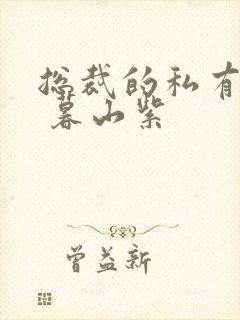 总裁的私有
暮山紫
曾益新